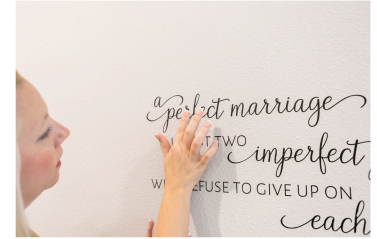 a perfect marriage
TWO imperfect
REFUSE TO GIVE UP ON
each